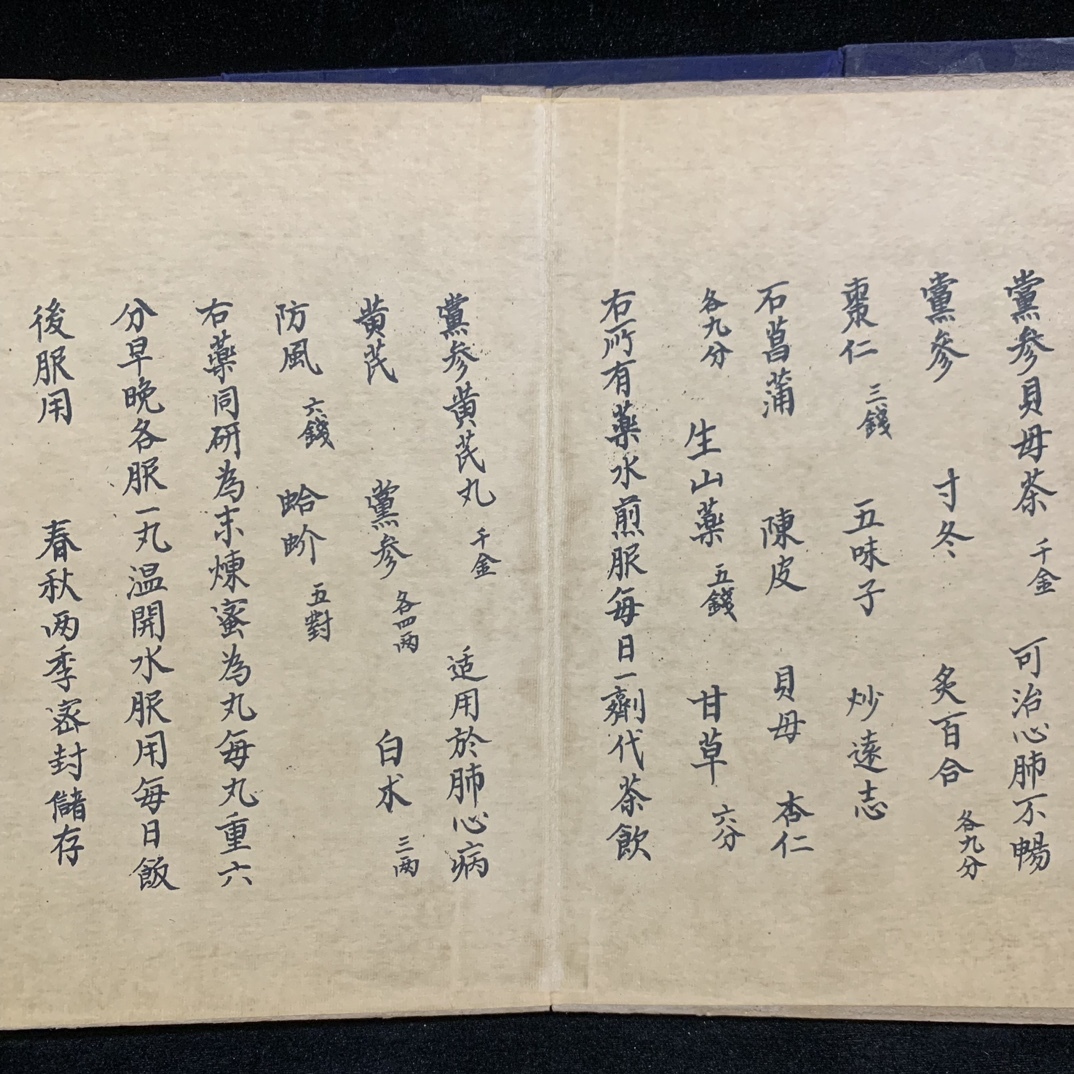 黨參貝母茶 千金 可治心肺不暢
黨參 寸冬 炙百合 各九分
棗仁 三錢 五味子 炒遠志
石菖蒲 陳皮 貝母 杏仁
各九分 生山藥 五錢 甘草 六分
右所有藥水煎服每日一劑代茶飲
黨參黄芪丸 千金 适用於肺心病
黄芪 黨參 各四两 白朮 三两
防風 六錢 蛤蚧 五對
右藥同研為末煉蜜為丸每丸重六
分早晚各服一丸温開水服用每日飯
後服用 春秋两季密封儲存